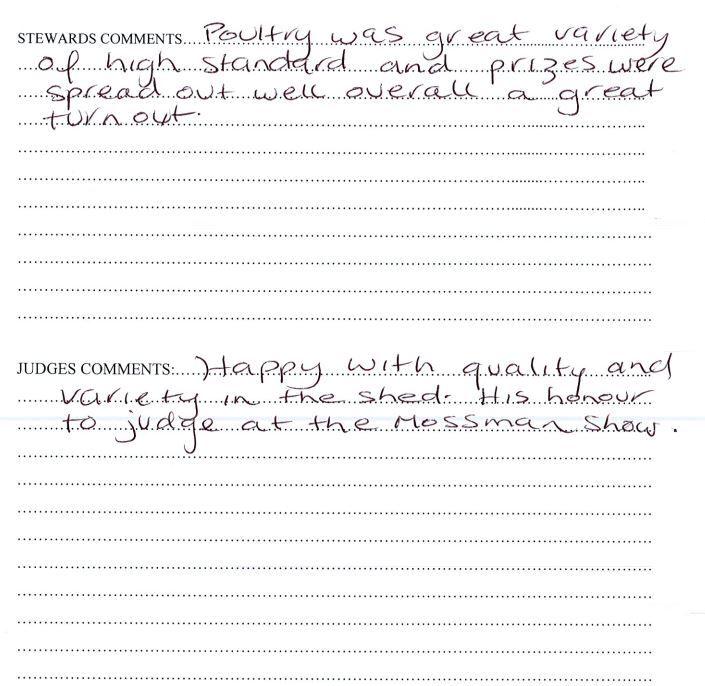 STEWARDS COMMENTS Poultry was great variety
of high standard and prizes were
spread out well overall a great
turn out.
JUDGES COMMENTS: Happy with quality and
variety in the shed. His honour
to judge at the Mossman Show.